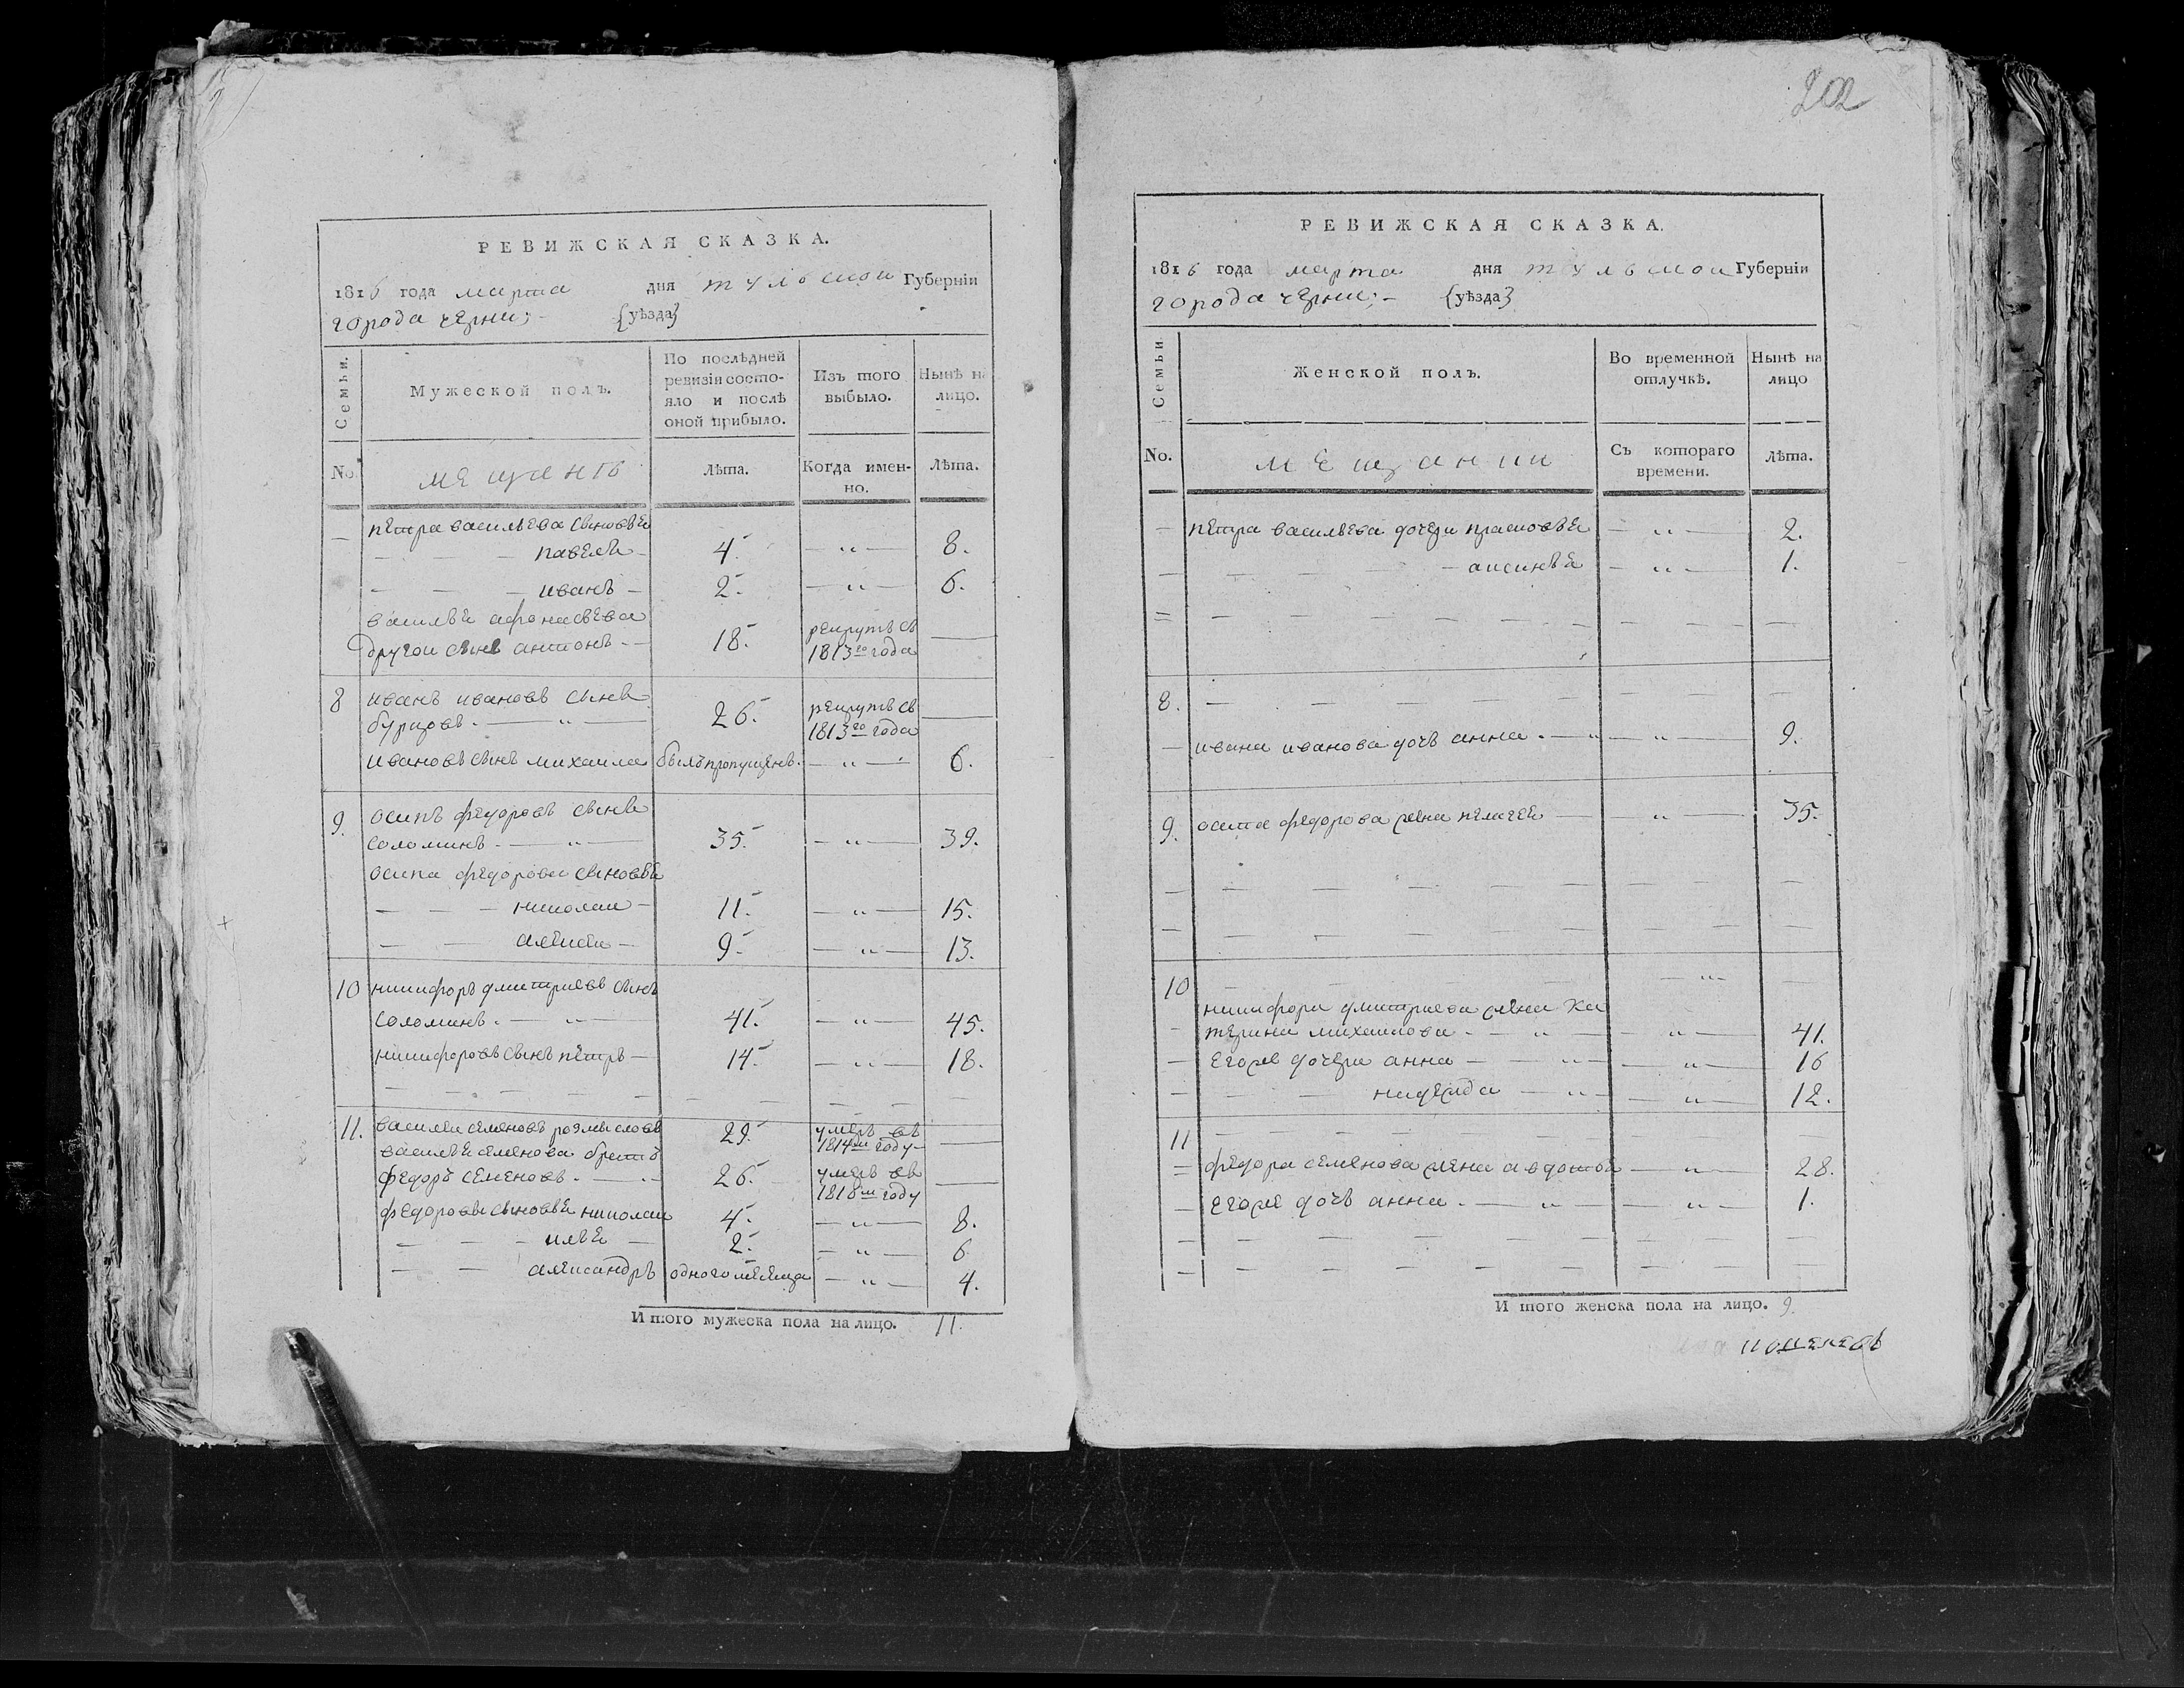 РЕВИЖСКАЯ СКАЗКА.
1816 года марта дня тульской Губерніи
города черни;- {уѣзда}
Семьи.
Мужеской полъ.
По послѣдней ревизіи состояло и послѣ оной прибыло.
Изъ того выбыло.
Нынѣ на лицо.
No.
мещанъ
Лѣта.
Когда именно.
Лѣта.
петра васильева сыновья
павелъ 4. 8.
иванъ 2. 6.
василья афонасьева
другой сынъ антонъ 18. рекрутъ съ 1813го года
8 иванъ ивановъ сынъ
бурцовъ. 26. рекрутъ съ 1813го года
ивановъ сынъ михаила былъ пропущенъ. 6.
9. осипъ федоровъ сынъ
соломинъ. 35. 39.
осипа федорова сыновья
николаи 11. 15.
алексеи 9. 13.
10 никифоръ дмитриевъ сынъ
соломинъ. 41. 45.
никифоровъ сынъ петръ 14. 18.
11. василеи семеновъ размысловъ 29. умеръ въ 1814м году
василья семенова братъ
федоръ семеновъ. 26. умеръ въ 1816м году
федоровы сыновья николаи 4. 8.
илья 2. 6
александръ одного месеца 4.
Итого мужеска пола на лицо. 11.
202
РЕВИЖСКАЯ СКАЗКА.
1816 года марта дня тульской Губерніи
города черни;- {уѣзда}
Семьи.
Женской полъ.
Во временной отлучкѣ.
Нынѣ на лицо
No.
мещанки
Съ котораго времени.
Лѣта.
петра васильева дочери прасковья 2.
аксинья 1.
8.
ивана иванова дочь анна. 9.
9. осипа федорова жена пелагея 35.
10
никифора дмитриева жена ка
терина михаилова. 41.
егоже дочери анна 16
надежда 12.
11
федора семенова жена авдотья 28.
егоже дочь анна. 1.
Итого женска пола на лицо. 9.